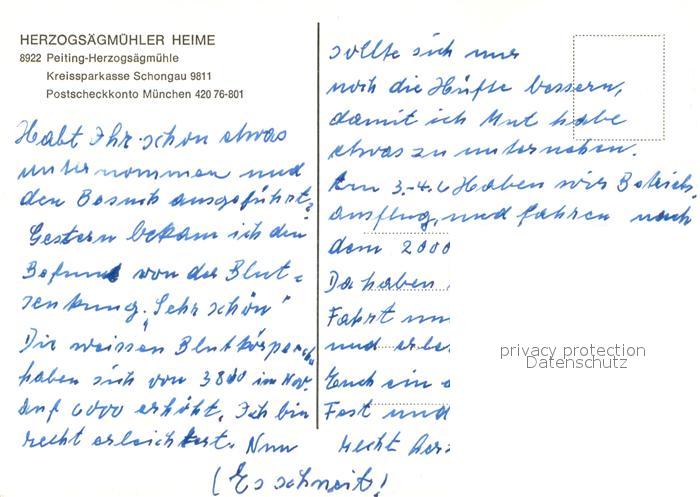 HERZOGSÄGMÜHLER HEIME
8922 Peiting-Herzogsägmühle
Kreissparkasse Schongau 9811
Postscheckkonto München 420 76-801
Habt Ihr schon etwas
unternommen und
den Besuch ausgeführt?
Gestern bekam ich den
Befund von der Blut=
senkung. „Sehr schön"
Die weissen Blutkörperchen
haben sich von 3800 im Nov.
auf 6000 erhöht. Ich bin
recht erleichtert. Nun
(Es schneit!
sollte sich nur
noch die Hüfte bessern,
damit ich Mut habe
etwas zu unternehmen.
Am 3.-4.6 Haben wir Betriebs
ausflug, und fahren nach
dem 2000
Da haben
Fahrt
und
Euch ein
Fest und
recht
privacy protection
Datenschutz